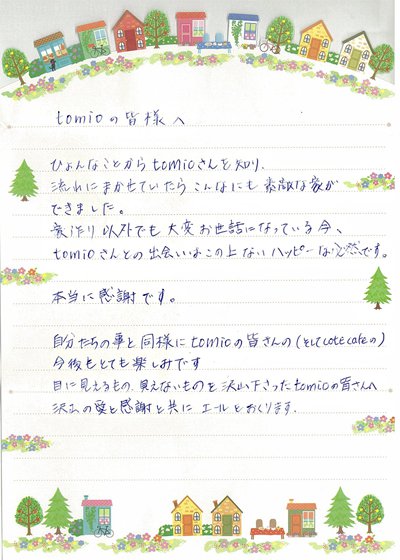 tomioの皆様へ
ひょんなことからtomioさんを知り、
流れにまかせていたら こんなにも 素敵な家が
できました。
家作り以外でも 大変お世話になっている今、
tomioさんとの出会いはこの上ないハッピーな必然です。
本当に感謝です。
自分たちの事と同様にtomioの皆さんの(そしてcote cafeの)
今後もとても楽しみです
目に見えるもの、見えないものを沢山下さったtomioの皆さんへ
沢山の愛と感謝と共に エールをおくります.